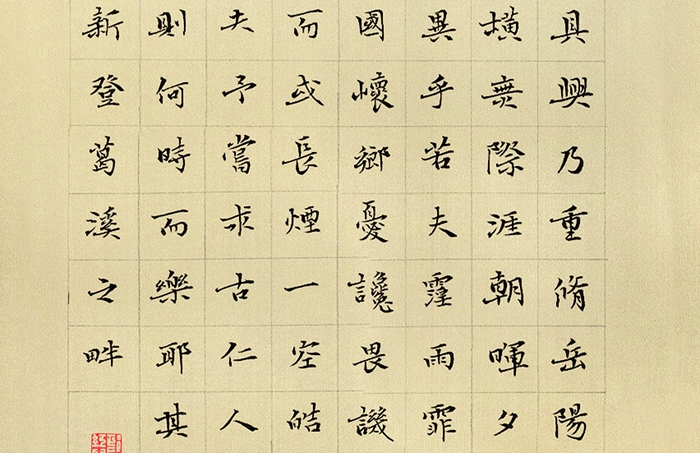 具興乃重脩岳陽
橫無際涯朝暉夕
異乎若夫霪雨霏
國懷鄉憂讒畏譏
而或長煙一空皓
夫予嘗求古仁人
則何時而樂耶其
新登葛溪之畔